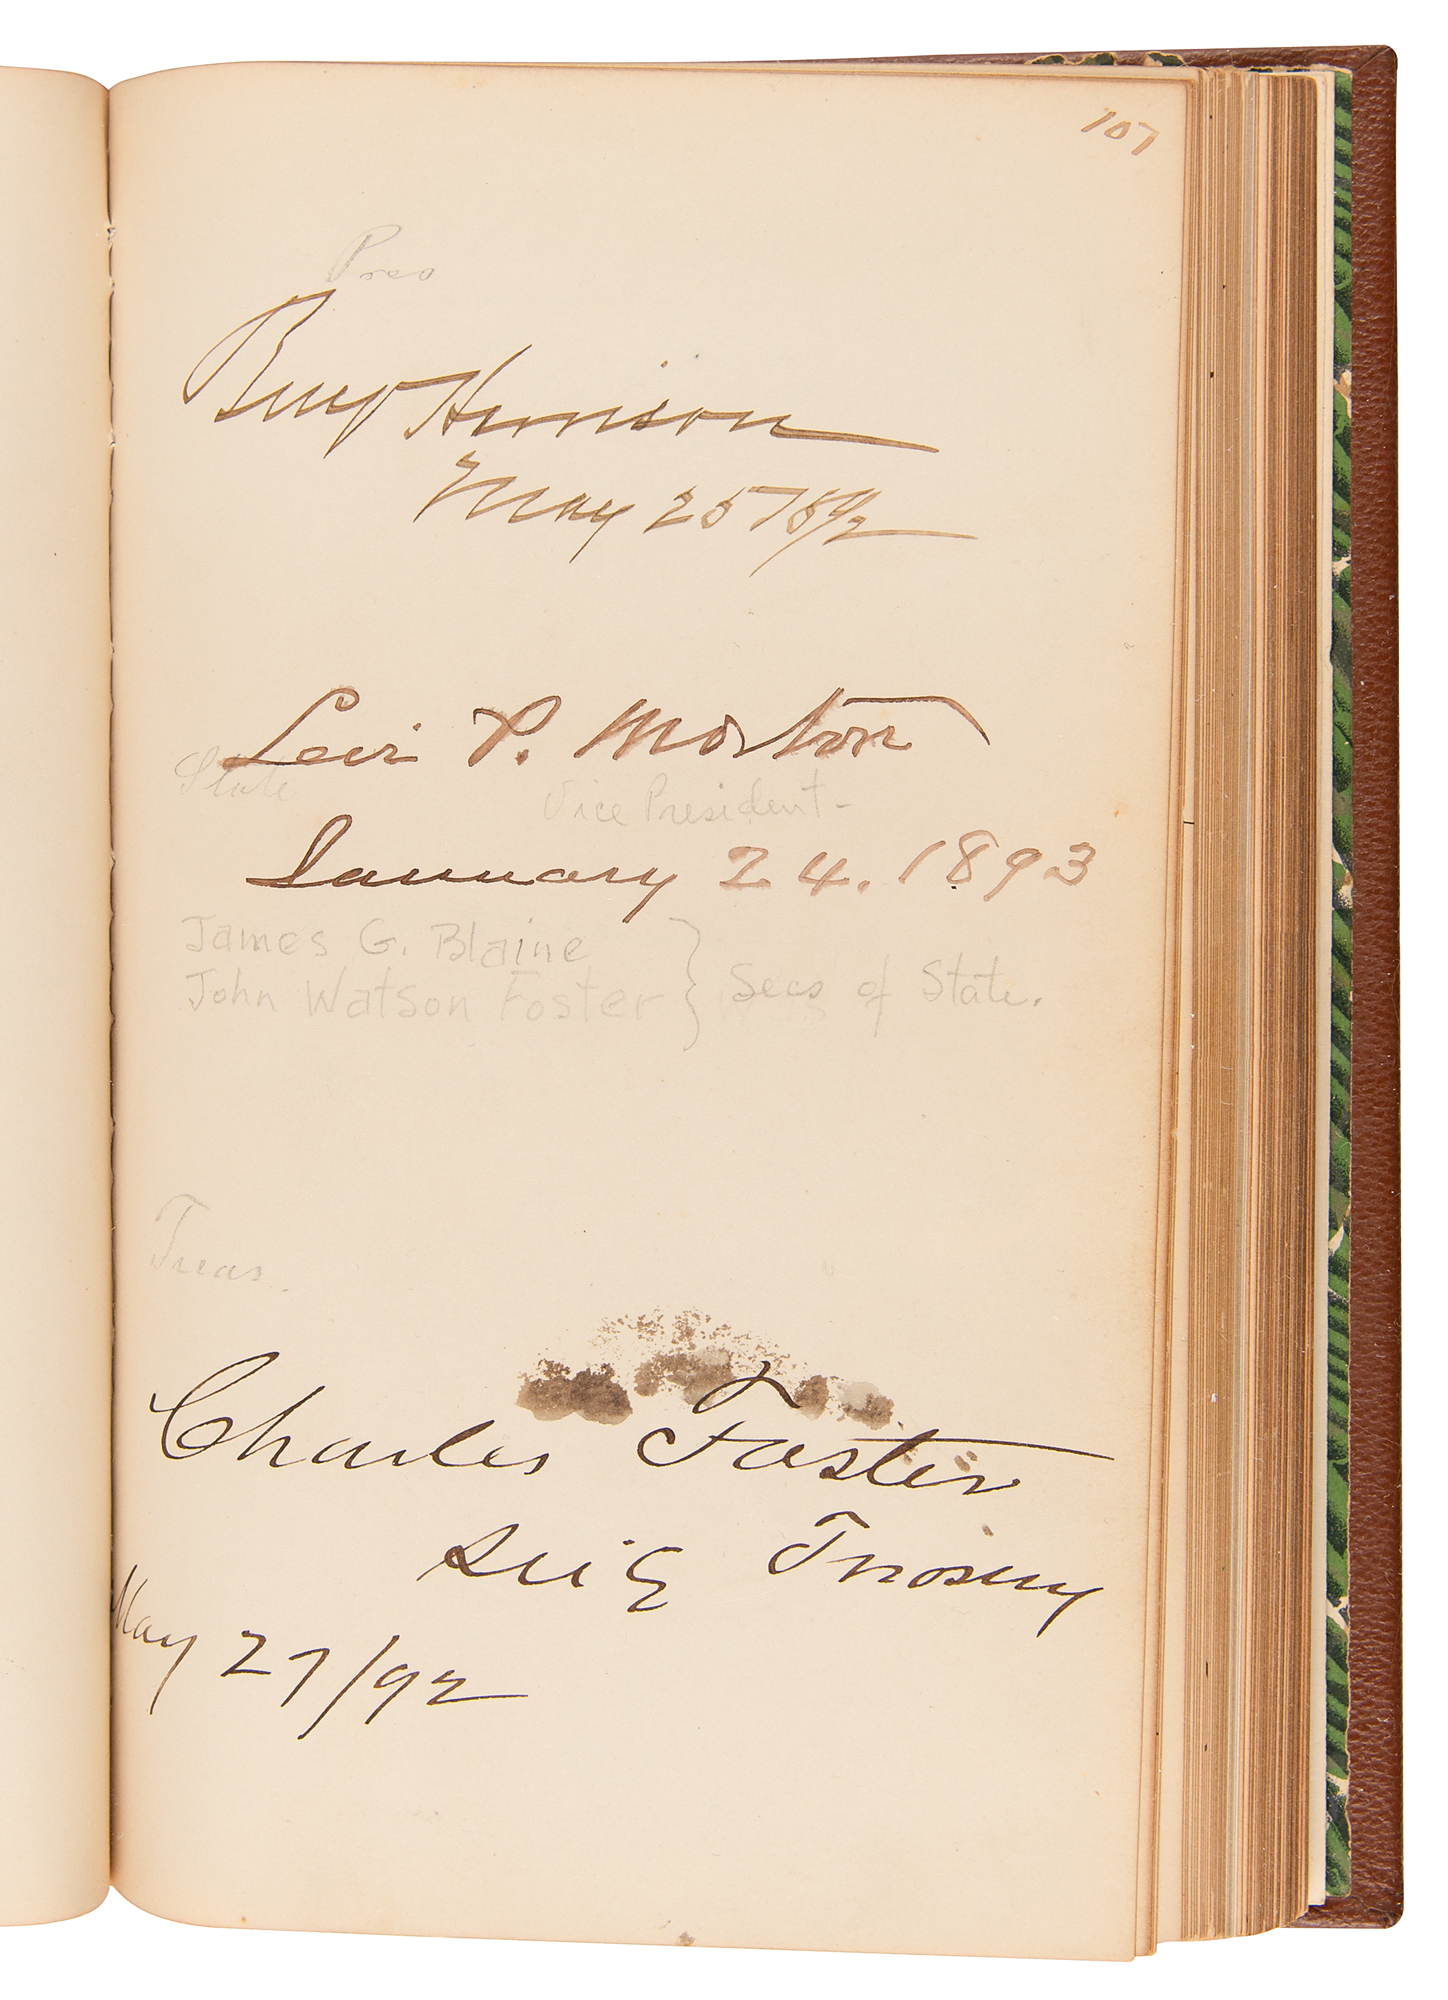 107
Pres
Benj Harrison
May 25 1892
Levi P. Morton
State
Vice President-
January 24. 1893
James G. Blaine
John Watson Foster } Secs of State.
Treas.
Charles Foster
Treasury
May 27/92